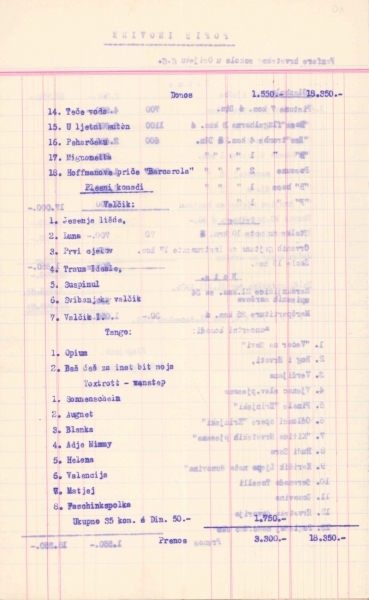 Donos 1.550.- 18.350.-
14. Teče voda
15. U ljetni suten
16. Peharček
17. Mignonetta
18. Hoffmanove priče "Barcarola"
Plesni komadi
Valčik:
1. Jesenje lišće,
2. Luna
3. Prvi cjelov
4. Traum Ideale,
5. Suspinul
6. Svibanjska valčik
7. Valčik I.
Tango:
1. Opium
2. Baš ćeš za inst bit moja
Foxtrott - wanstep
1. Sonnenschein
2. Augnet
3. Blanka
4. Adje Mimmy
5. Helena
6. Valencija
W. Matjej
8. Faschinkspolka
Ukupno 35 kom. á Din. 50.- 1.750.-
Prenos 3.300.- 18.350.-